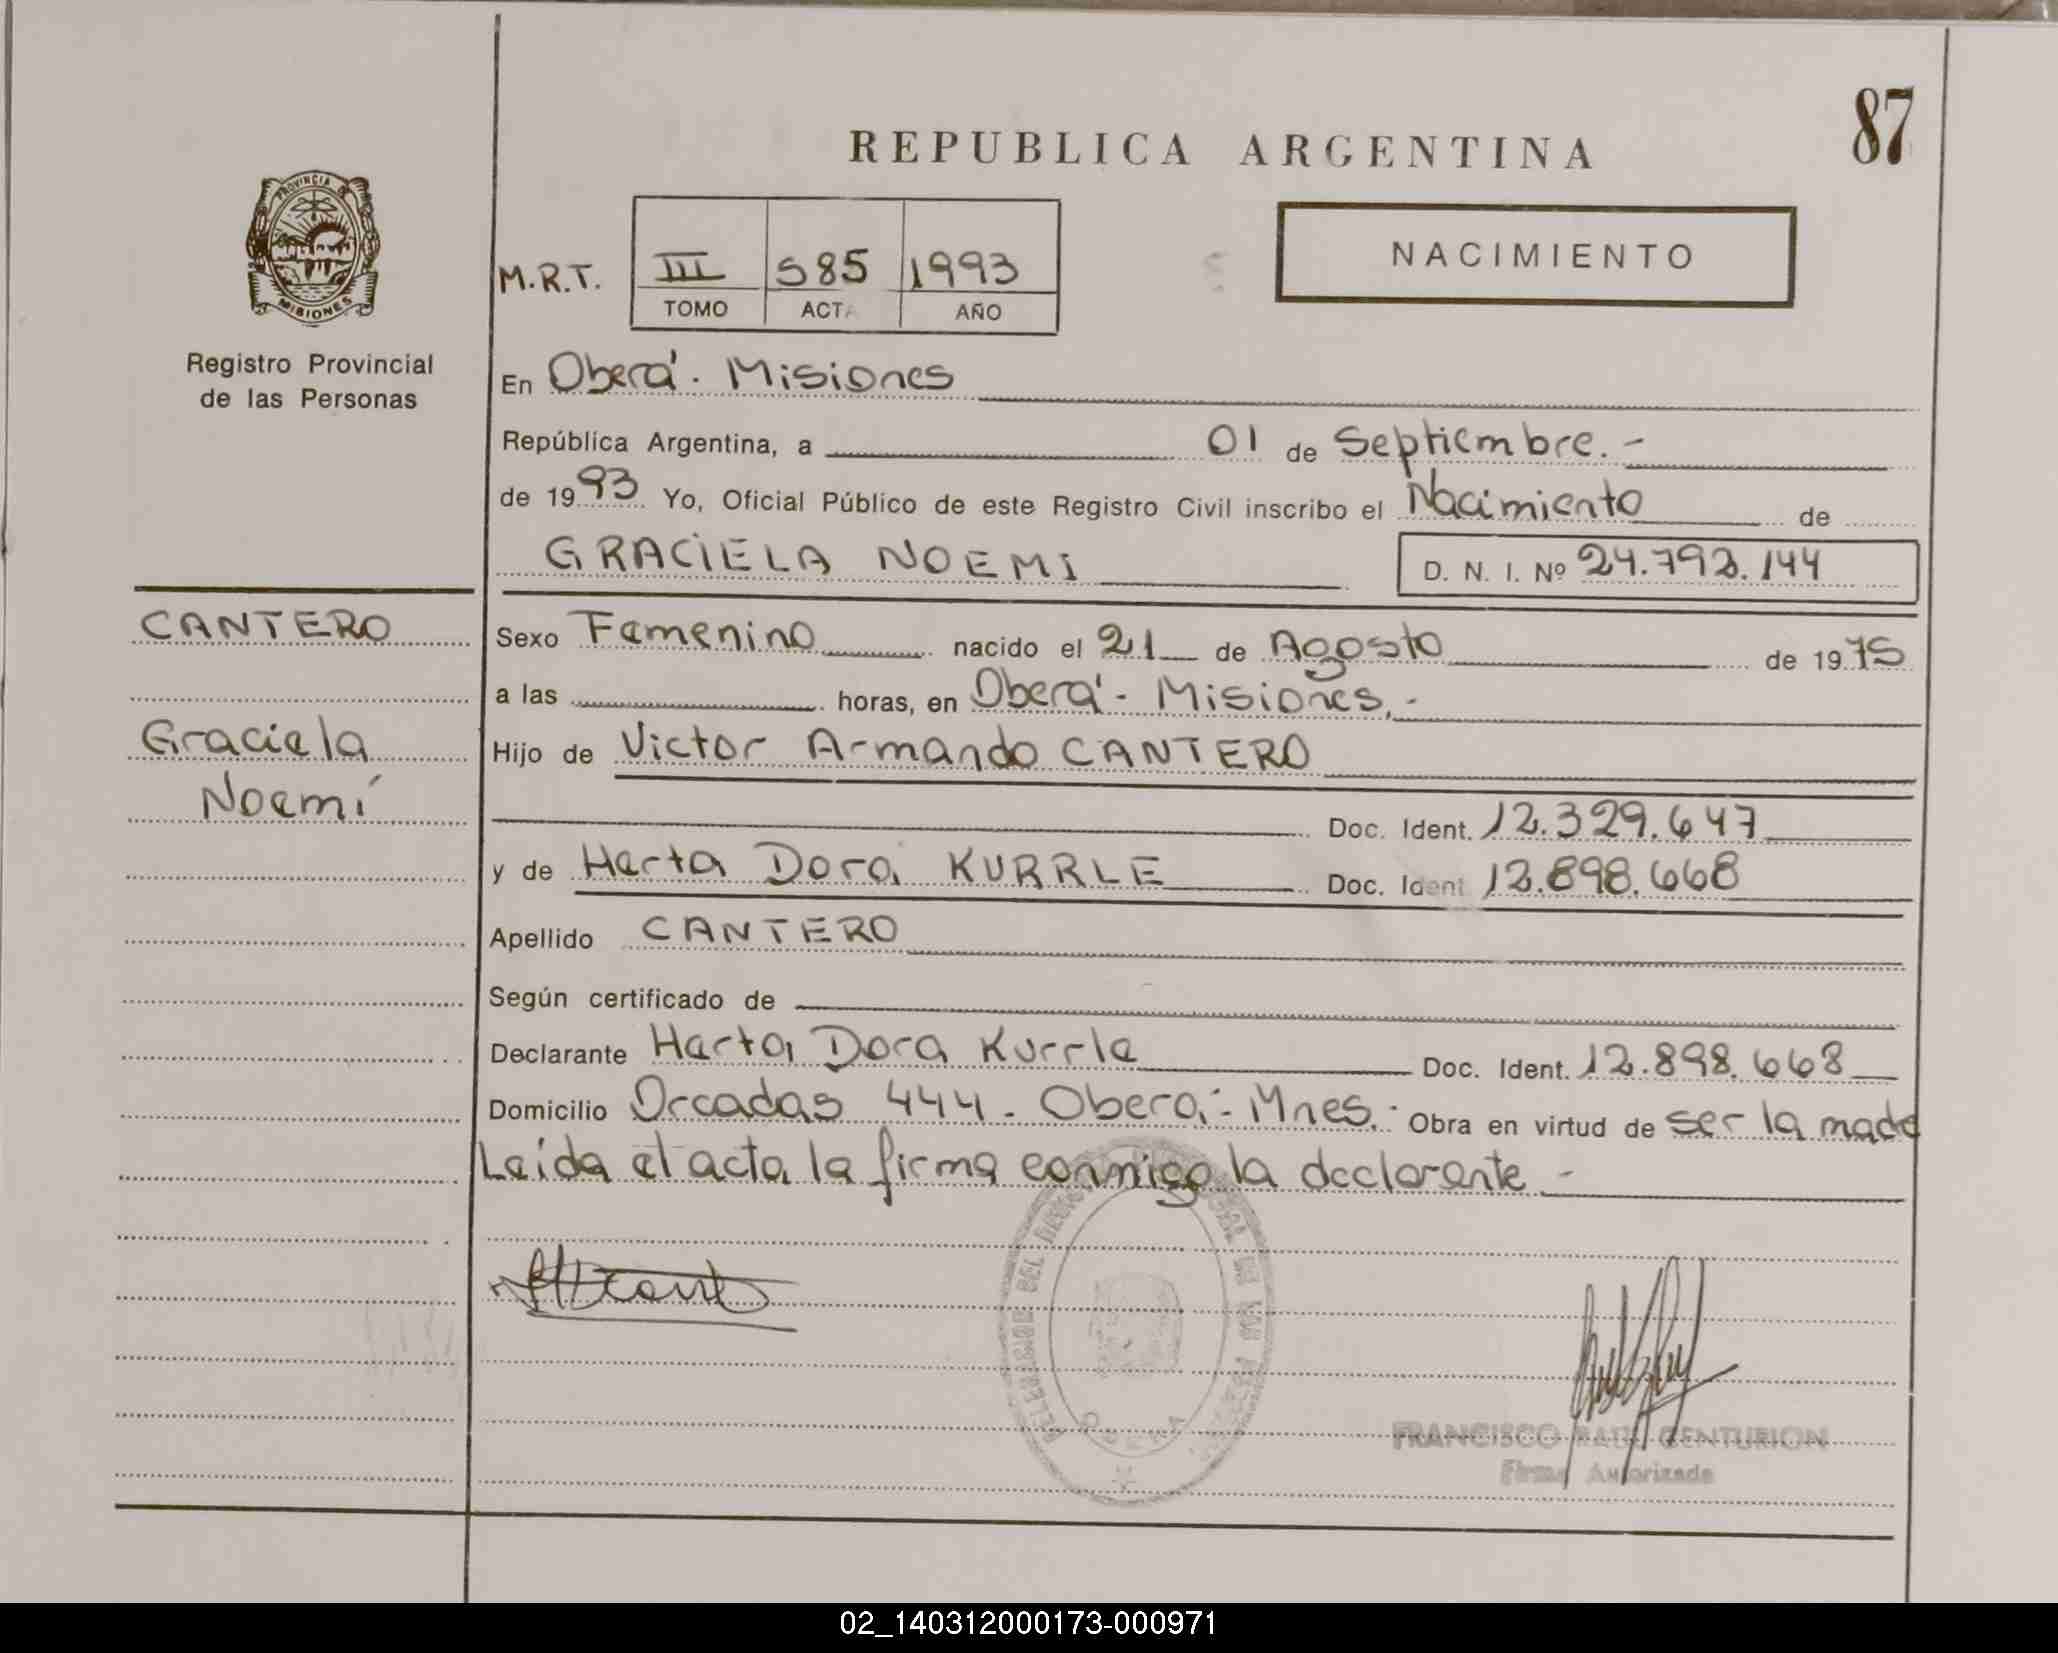 87
REPUBLICA ARGENTINA
PROVINCIA DE
MISIONES
Registro Provincial
de las Personas
NACIMIENTO
M.R.T. III 585 1993
TOMO ACTA AÑO
En Oberá - Misiones
República Argentina, a 01 de Septiembre.-
de 1993 Yo, Oficial Público de este Registro Civil inscribo el Nacimiento de
GRACIELA NOEMI D. N. I. Nº 24.792.144
CANTERO
Graciela
Noemí
Sexo Femenino nacido el 21 de Agosto de 1975
a las horas, en Oberá - Misiones.-
Hijo de Victor Armando CANTERO
Doc. Ident. 12.329.647
y de Herta Dora KURRLE Doc. Ident 12.898.668
Apellido CANTERO
Según certificado de
Declarante Herta Dora Kurrle Doc. Ident. 12.898.668
Domicilio Orcadas 444 - Oberá - Mnes.- Obra en virtud de ser la made
Leída el acta la firma conmigo la declarante -
OBERA
FRANCISCO RAUL CENTURION
Firma Autorizada
02_140312000173-000971